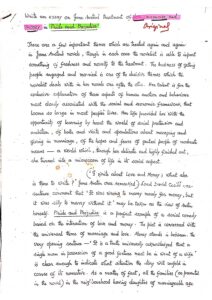 Write an essay on Jane Austen's treatment of love, marriage and
money in Pride and Prejudice.
There are a few important themes which are treated again and again
in Jane Austen's novels, though in each case the novelist is able to impart
something of freshness and novelty to the treatment. The business of getting
people engaged and married is one of the decisive themes which the
novelist deals with in her novels over and over again.
exclusive exploration of those aspects of human motives and behaviour
most closely associated with the social and economic framework, that
looms so large in most people's lives. Her life provided her with the
opportunity of learning by heart the world of social position and
ambition, of balls and visits and speculations about marrying and
giving in marriage, of the hopes and fears of genteel people of moderate
means — a world which, through her delicate and highly gifted art,
she turned into a microcosm of life in its social aspect.
"If I write about Love and Money; what else
is there to write?" Jane Austen once remarked; Lord David Cecil
comment that "It was wrong to marry money for money, but
it was silly to marry without it" may be taken as the view of Austen
herself. Pride and Prejudice is a perfect example of a social comedy
based on the interaction of love and money. The plot is concerned with
the universal theme of marriage and love. Money stands in
very opening section — "It is a truth universally acknowledged that a
single man in possession of a good fortune must be in want of a wife"
is clear enough to indicate what situation the story will unfold in
course of its narrative. As a matter of fact, all the families
in the novel) in the neighbourhood having daughters of marriageable age